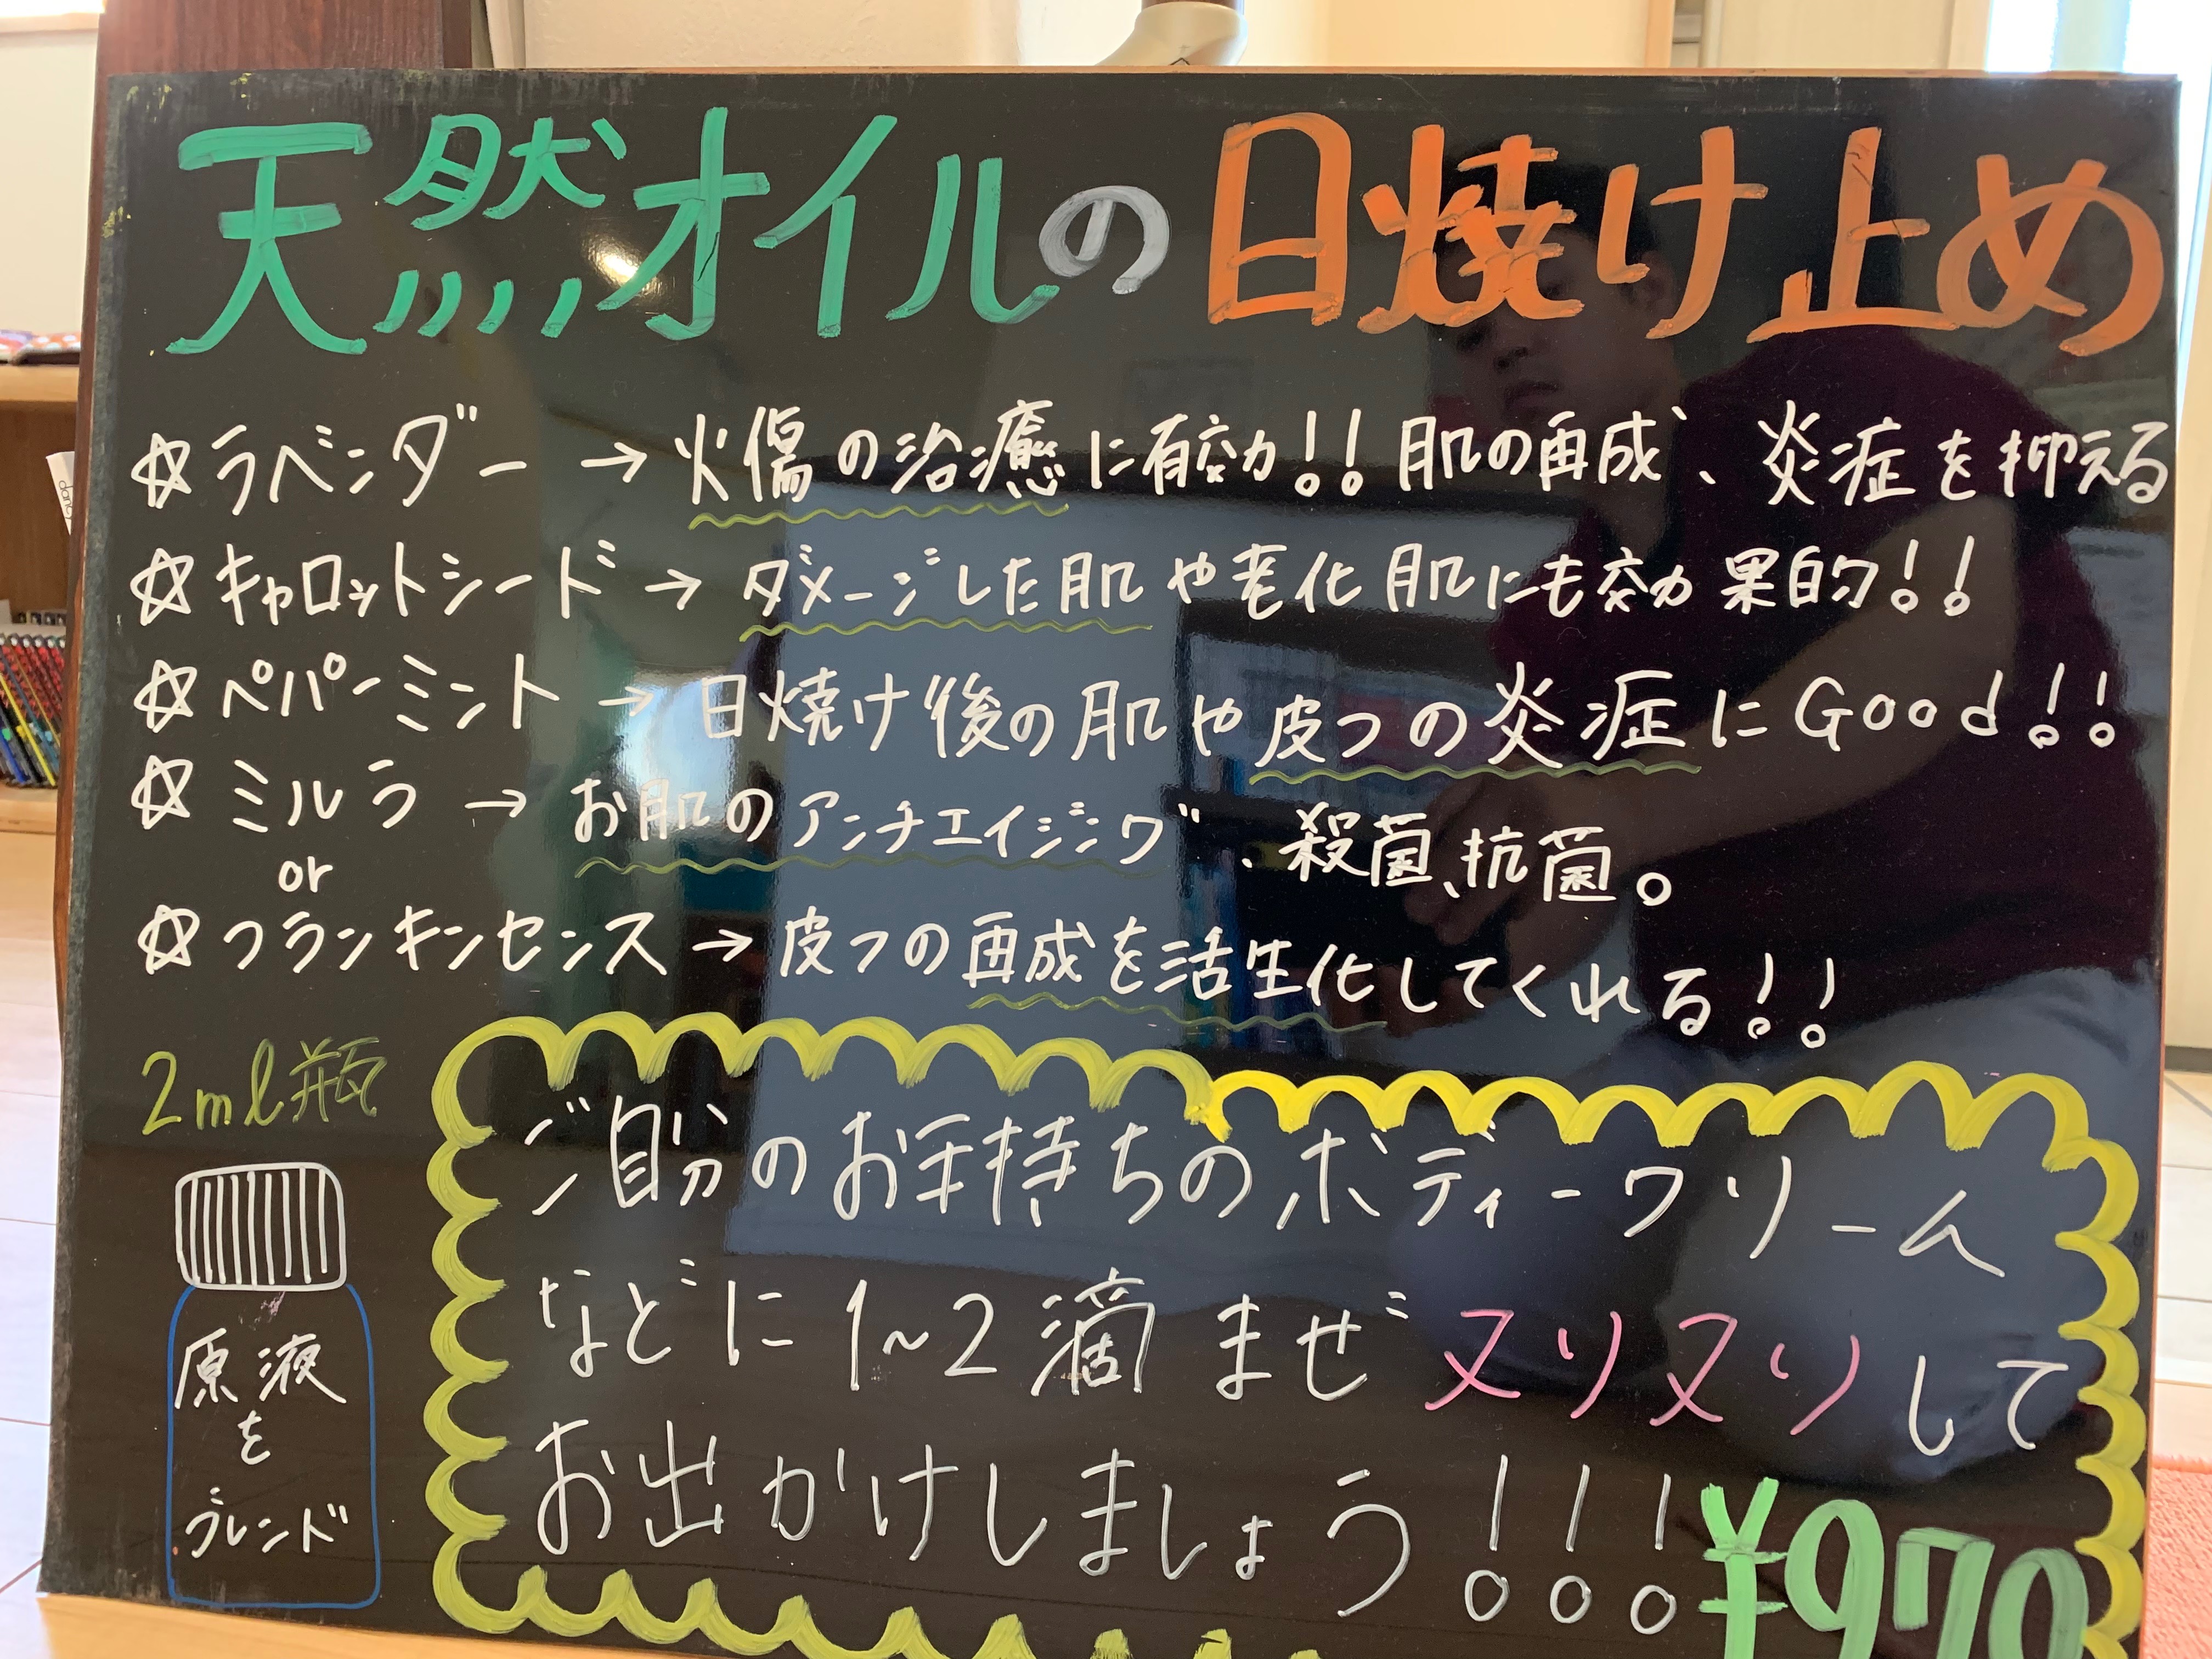 天然オイルの日焼け止め
☆ラベンダー → 火傷の治癒に有効!! 肌の再成、炎症を抑える
☆キャロットシード → ダメージした肌や老化肌にも効果的!!
☆ペパーミント → 日焼け後の肌や皮フの炎症にGood!!
☆ミルラ → お肌のアンチエイジング、殺菌、抗菌。
or
☆フランキンセンス → 皮フの再成を活生化してくれる!!
2ml瓶
原液
を
ブレンド
ご自分のお手持ちのボディークリーム
などに1~2滴まぜヌリヌリして
お出かけしましょう!!!
¥970